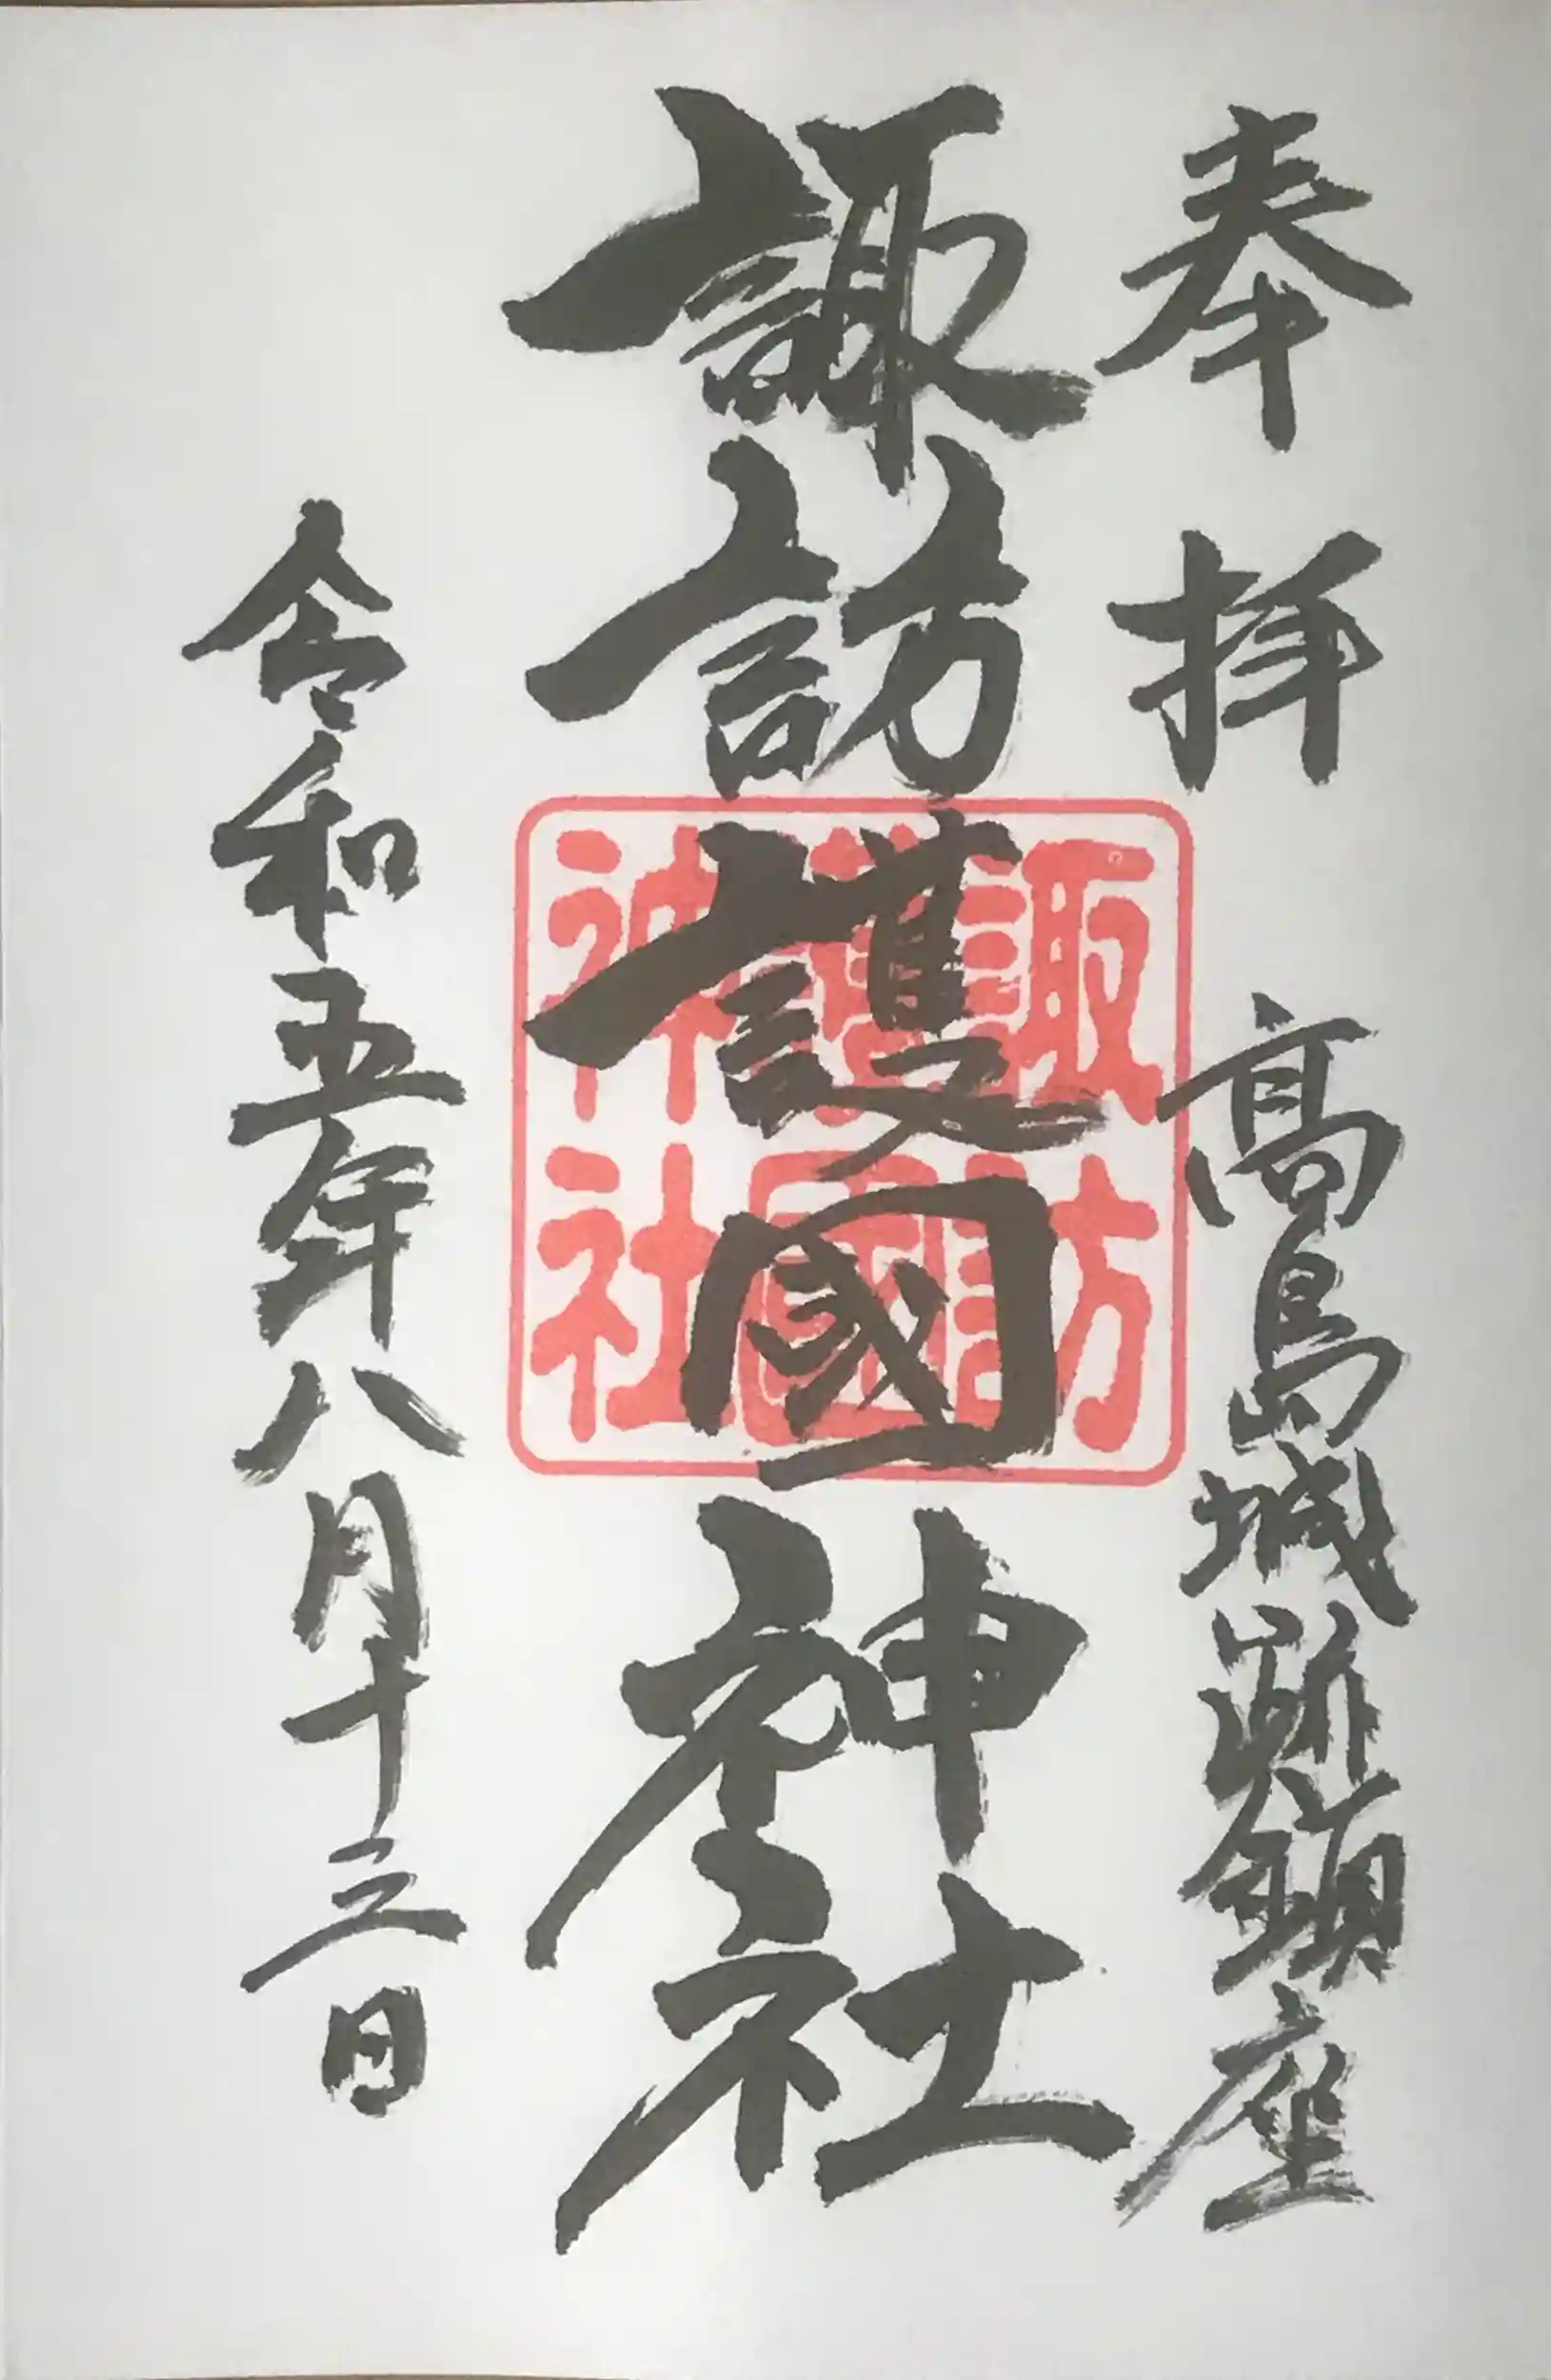 奉拝 高島城跡鎮座
諏訪護國神社
令和五年八月十三日
諏訪
護國
神社